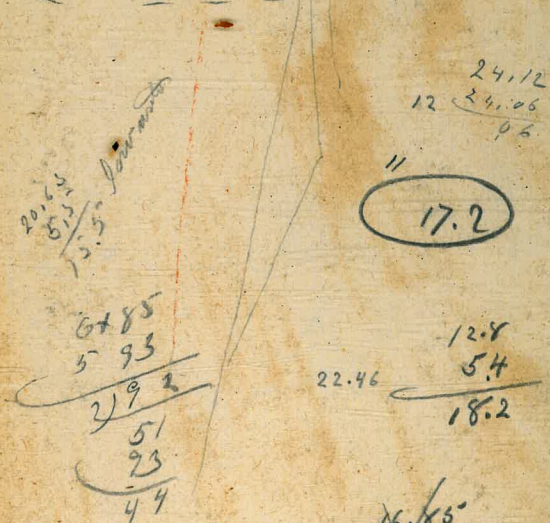 24.12
12 24.06
06
"
17.2
20.63
5.3
15.5
6+85
5 93
2)9 2
51
23
44
12.8
5.4
22.46
18.2